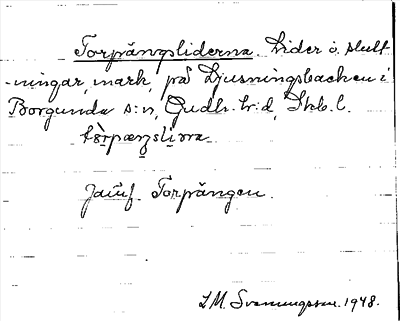 Torpängsliderna. Lider o. slutt-
ningar, mark, på Ljusningsbacken i
Borgunda s:n, Gudh. h:d, Skb. l.
Jämf. Torpängen.
L.M. Svanungsson. 1948.